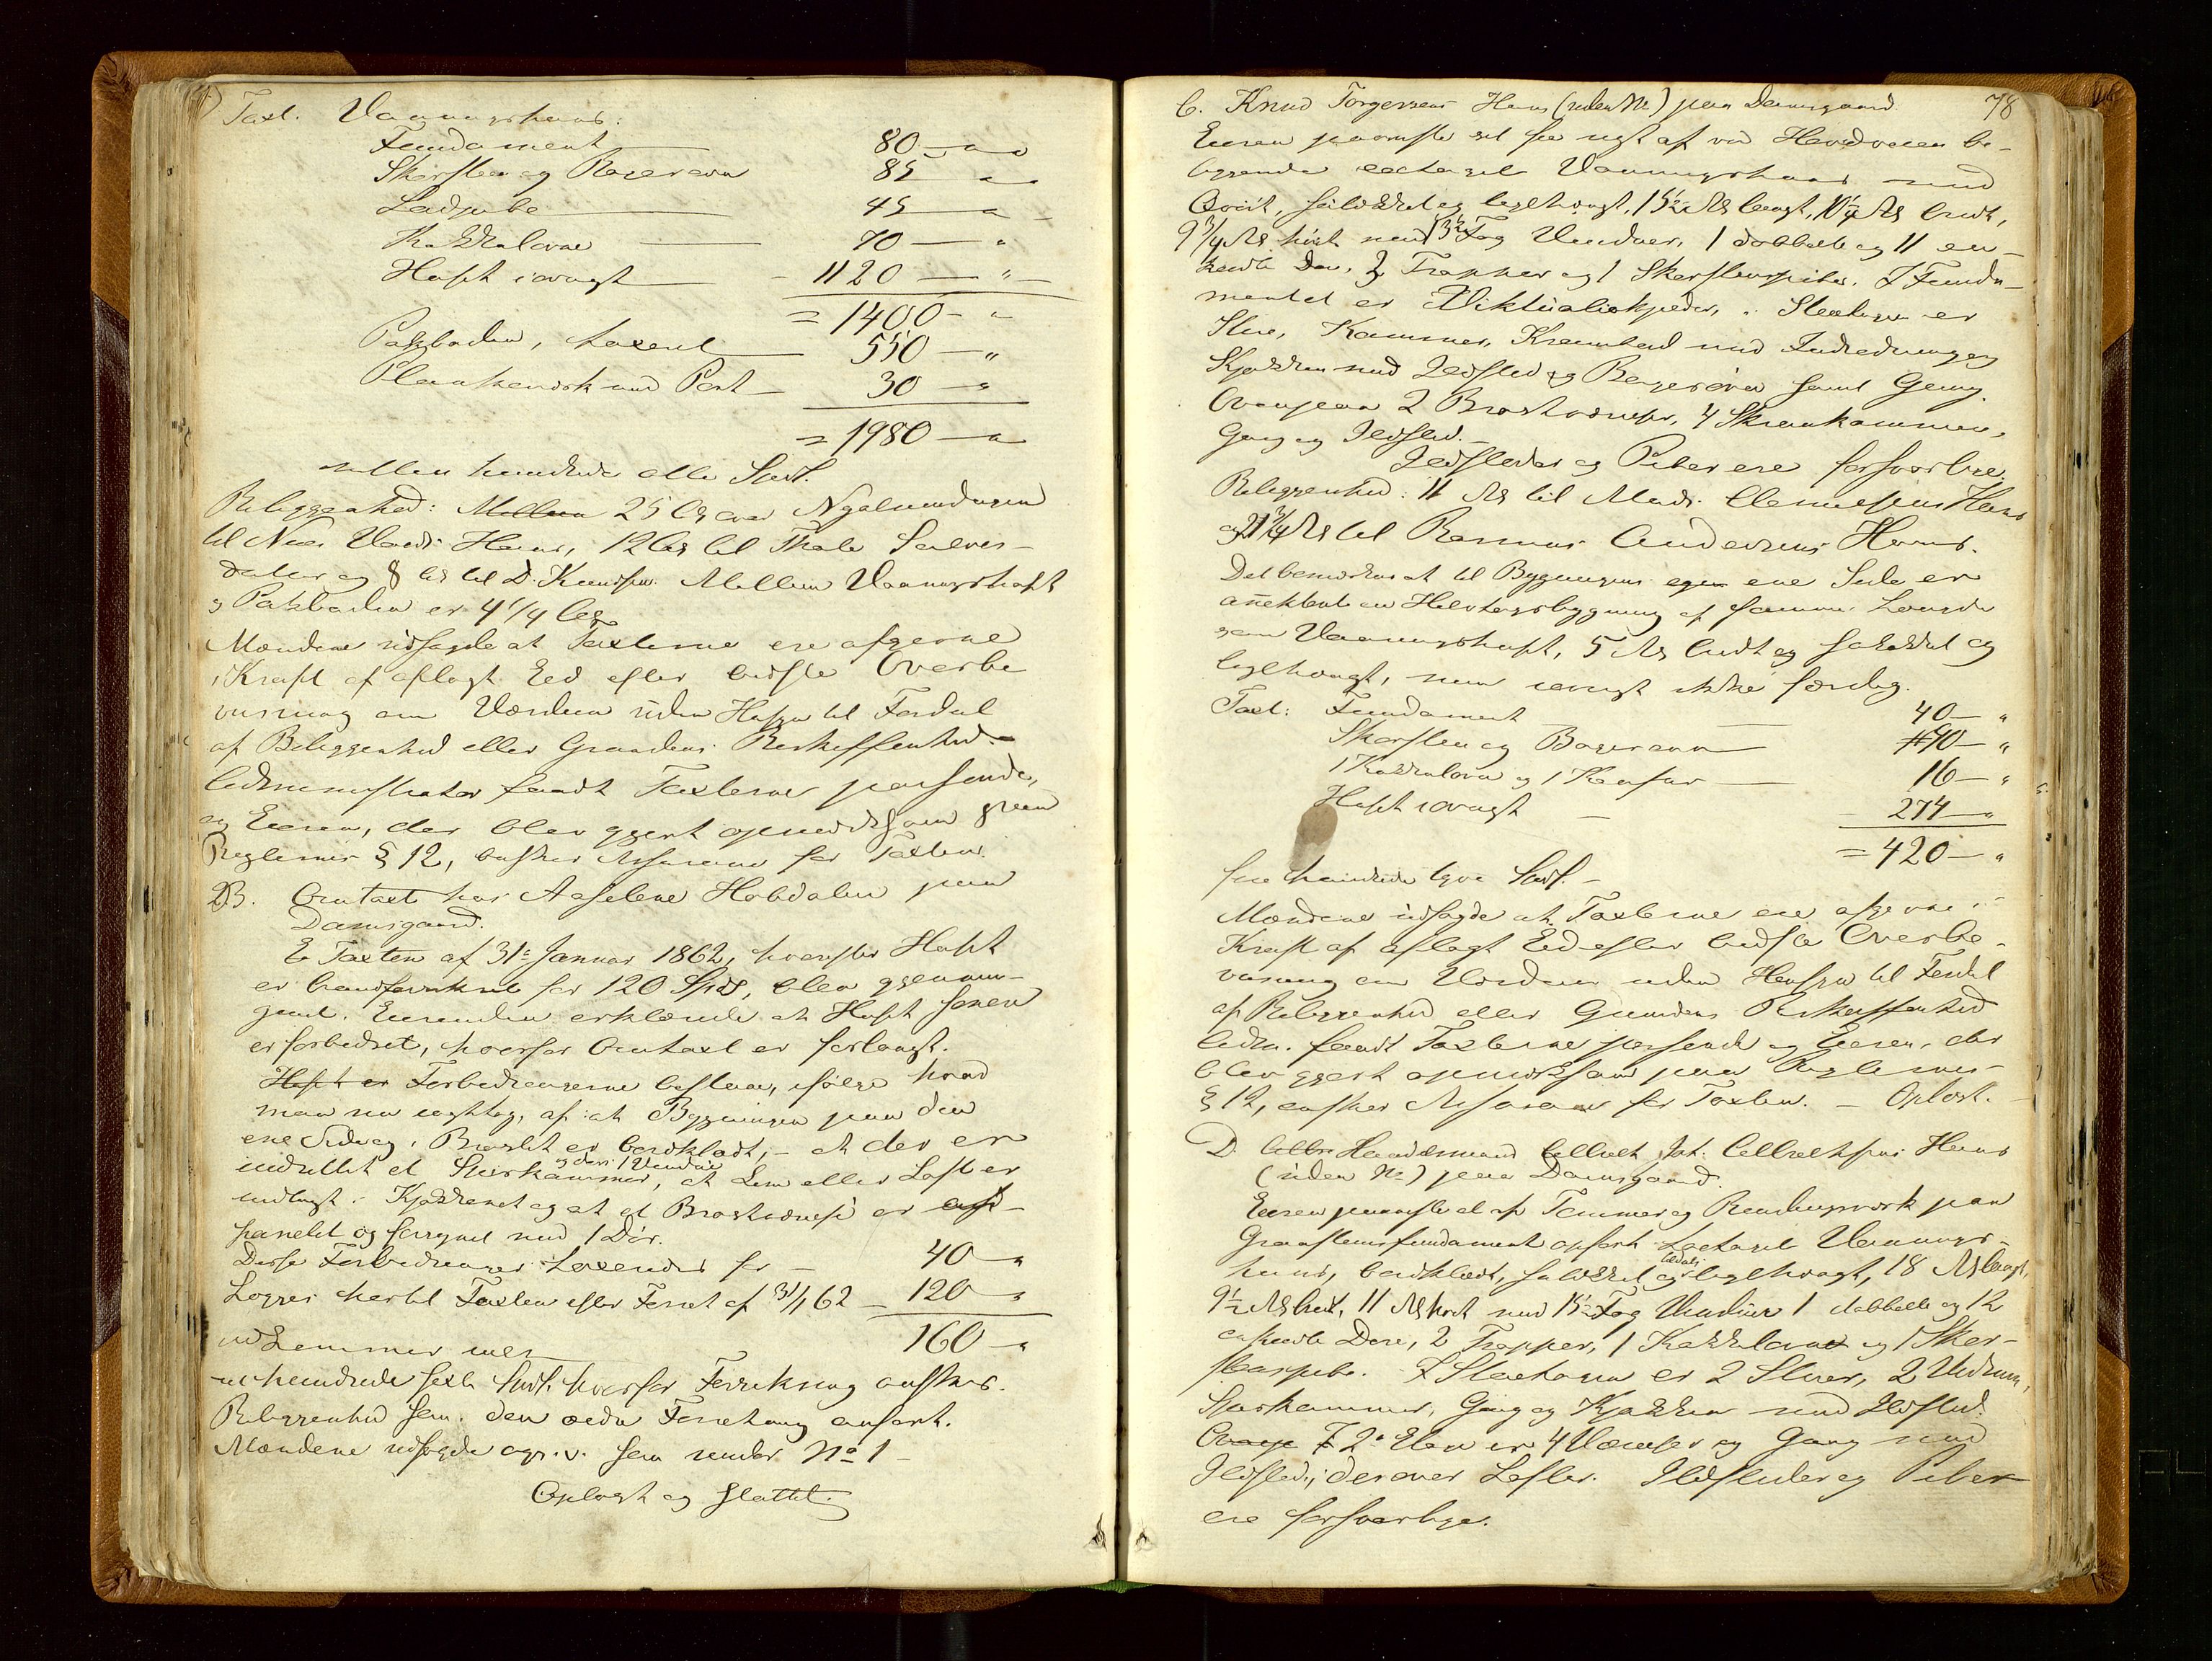 Taxt. Vaaningshuus:
Fundament 80 — "
Skorsteen og Bagerovn 85 "
Ladgube 45 "
Kakkelovne 70 — "
Huset iøvrigt 1120 — "
= 1400 - "
Pakboden, taxeret 550 — "
Plankeværk med Port 30 — "
= 1980 — "
nitten hundrede otte Spd.
Beliggenhed: Mellem 25 Al over Nyalmendingen
til Huus, 12 Al til
og 8 Al til D. Knudsen. Mellem Vaaningshuset
og Pakboden er 4 1/4 Al.
Mændene udsagde at Taxterne ere afgivne
i Kraft af aflagt Eed efter bedste Overbe-
viisning om Værdien uden Hensyn til Fordeel
af Beliggenhed eller Grundens Beskaffenhed.
Administrator fandt Taxterne passende,
og Eieren, der blev gjort opmærksom paa
Reglernes § 12, ønsker Assurance for Taxten.
B. Omtaxt hos Aaselene Hobdalen paa
Damsgaard.
Taxten af 31te Januar 1862, hvorefter Huset
er brandforsikret for 120 Spd, blev gjennem-
gaaet. Eierinden erklærede at Huset senere
er forbedret, hvorfor Omtaxt er forlangt.
Huset er Forbedringerne bestaae, ifølge hvad
man nu iagttog, af: at Bygningen paa den
ene Side og i Brystet er bordklædt, - at der er
indrettet et Spiiskammer, og deri 1 Vindue at Lem eller Loft er
indlagt i Kjøkkenet og at et Brystværelse er
panelet og forsynet med 1 Dør.
Disse Forbedringer taxeredes for — 40 — "
Lægges hertil Taxten efter Forret af 31/1 62 — 120 — "
160 — "
eet hundrede sexti Spd. hvorfor Forsikring ønskes.
Beliggenhed som i den ældre Forretning anført.
Mændene udsagde ogs. v. som under No 1
Oplæst og sluttet.
78
C. Knud Torgersens Huus (uden No) paa Damsgaard.
Eieren paaviiste et saa nyt af ved Hovedveien be-
liggende eetages Vaaningshuus med
Qvist, sulekket og teglhængt, 15 1/2 Al langt, 10 1/4 Al bredt,
9 3/4 Al høit med 13 1/2 Fag Vinduer, 1 dobbelt og 11 en-
kelte Døre, 2 Trapper og 1 Skorsteenspibe. I Funda-
mentet er Viktualiekjelder, i Stueetagen er
Stue, Kammer, Krambod med Indredning og
Kjøkken med Ildsted og Bagerovn samt Gang.
Ovenpaa 2 Brystværelser, 4 Skraakammere,
Gang og Ildsted.
Ildsteder og Piber ere forsvarlige.
Beliggenhed: 11 Al til Mads Clemetsens Huus
og 21 3/4 Al til Rasmus Andersens Huus.
Det bemærkes at til Bygningens ene Side er
annekteret en Halvtagsbygning af samme Længde
som Vaaningshuset, 5 Al bredt og sulekket og
teglhængt, men iøvrigt ikke færdig.
Taxt: Fundament 40 — "
Skorsteen og Bagerovn 90 — "
1 Kakkelovn og 1 Komfur — 16 — "
Huset iøvrigt — 274 — "
= 420 — "
fire hundrede tyve Spd. —
Mændene udsagde at Taxterne ere afgivne i
Kraft af aflagt Eed efter bedste Overbe-
viisning om Værdien uden Hensyn til Fordeel
af Beliggenhed eller Grundens Beskaffenhed
Adm. fandt Taxterne passende og Eieren, der
blev gjort opmærksom paa Reglernes
§ 12, ønsker Assurance for Taxten. — Oplæst. —
D. Handelsmand Huus
(uden No) paa Damsgaard.
Eieren paaviiste et af Tømmer og Bindingsværk paa
Graasteensfundament opført toetages Vaanings-
huus, bordklædt, sulekket og teglhængt, 18 Al langt,
9 1/2 Al bredt, 11 Al høit med 15 1/2 Fag Vinduer 1 dobbelt og 12
enkelte Døre, 2 Trapper, 1 Kakkelovn og 1 Skor-
steenspibe. I Stueetagen er 2 Stuer, 2 Udrum,
Spiiskammer, Gang og Kjøkken med Ildsted.
I 2den Etage er 4 Værelser og Gang med
Ildsted; derover Lofter. Ildsteder og Piber
ere forsvarlige.